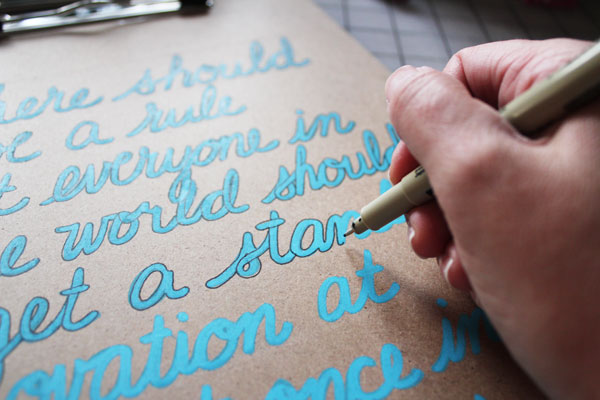 here should
a rule
everyone in
world should
get a stan
ovation at
once in